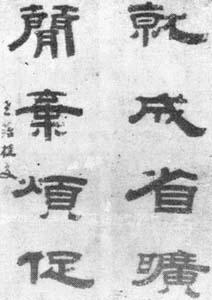 就成省曠
簡棄煩促